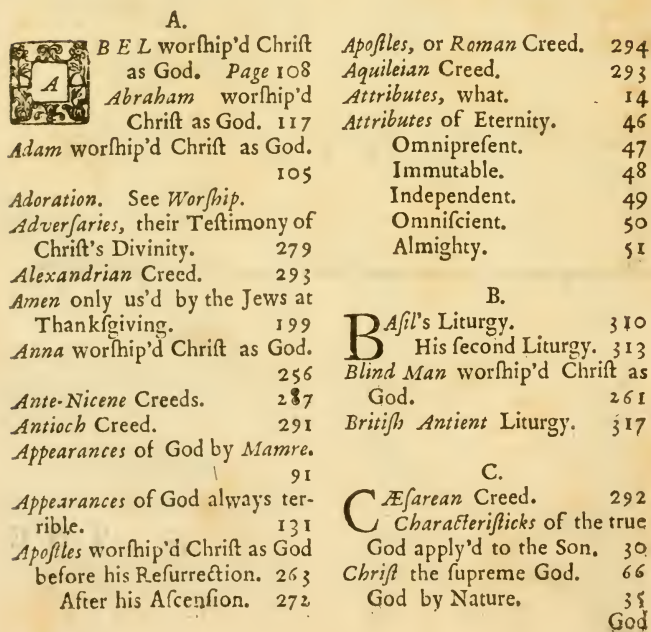 A.
ABEL worſhip'd Chriſt
as God. Page 108
Abraham worſhip'd
Chriſt as God. 117
Adam worſhip'd Chriſt as God.
105
Adoration. See Worſhip.
Adverſaries, their Teſtimony of
Chriſt's Divinity. 279
Alexandrian Creed. 293
Amen only us'd by the Jews at
Thankſgiving. 199
Anna worſhip'd Chriſt as God.
256
Ante-Nicene Creeds. 287
Antioch Creed. 291
Appearances of God by Mamre.
91
Appearances of God always ter-
rible. 131
Apoſtles worſhip'd Chriſt as God
before his Reſurrection. 263
After his Aſcenſion. 272
Apoſtles, or Roman Creed. 294
Aquileian Creed. 293
Attributes, what. 14
Attributes of Eternity. 46
Omnipreſent. 47
Immutable. 48
Independent. 49
Omniſcient. 50
Almighty. 51
B.
BAſil's Liturgy. 310
His ſecond Liturgy. 313
Blind Man worſhip'd Chriſt as
God. 261
Britiſh Antient Liturgy. 317
C.
CÆſarean Creed. 292
Characteriſticks of the true
God apply'd to the Son. 30
Chriſt the ſupreme God. 66
God by Nature. 35
God